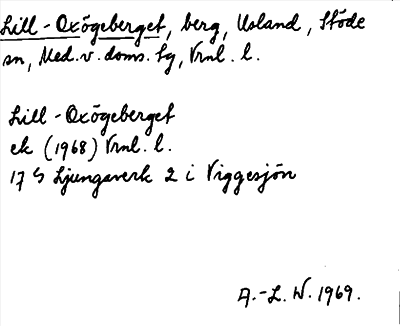 Lill-Oxögeberget, berg, Usland, Stöde
sn, Med.v.doms. tg, Vrnl. l.
Lill-Oxögeberget
ek (1968) Vrnl. l.
17 S Ljungaverk 2 i Viggesjön
A.-L. W. 1969.